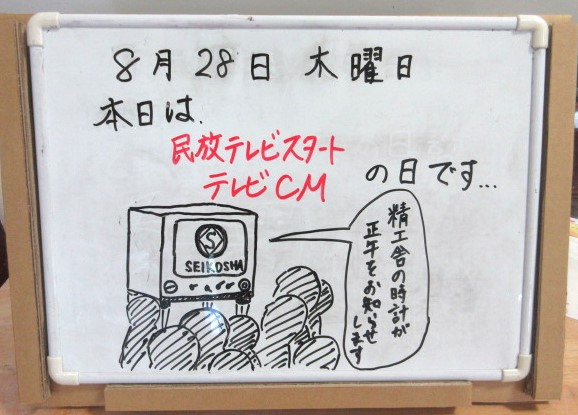 8月28日 木曜日
本日は.
民放テレビスタート
テレビCM
の日です...
S
SEIKOSHA
精工舎の時計が
正午をお知らせ
します